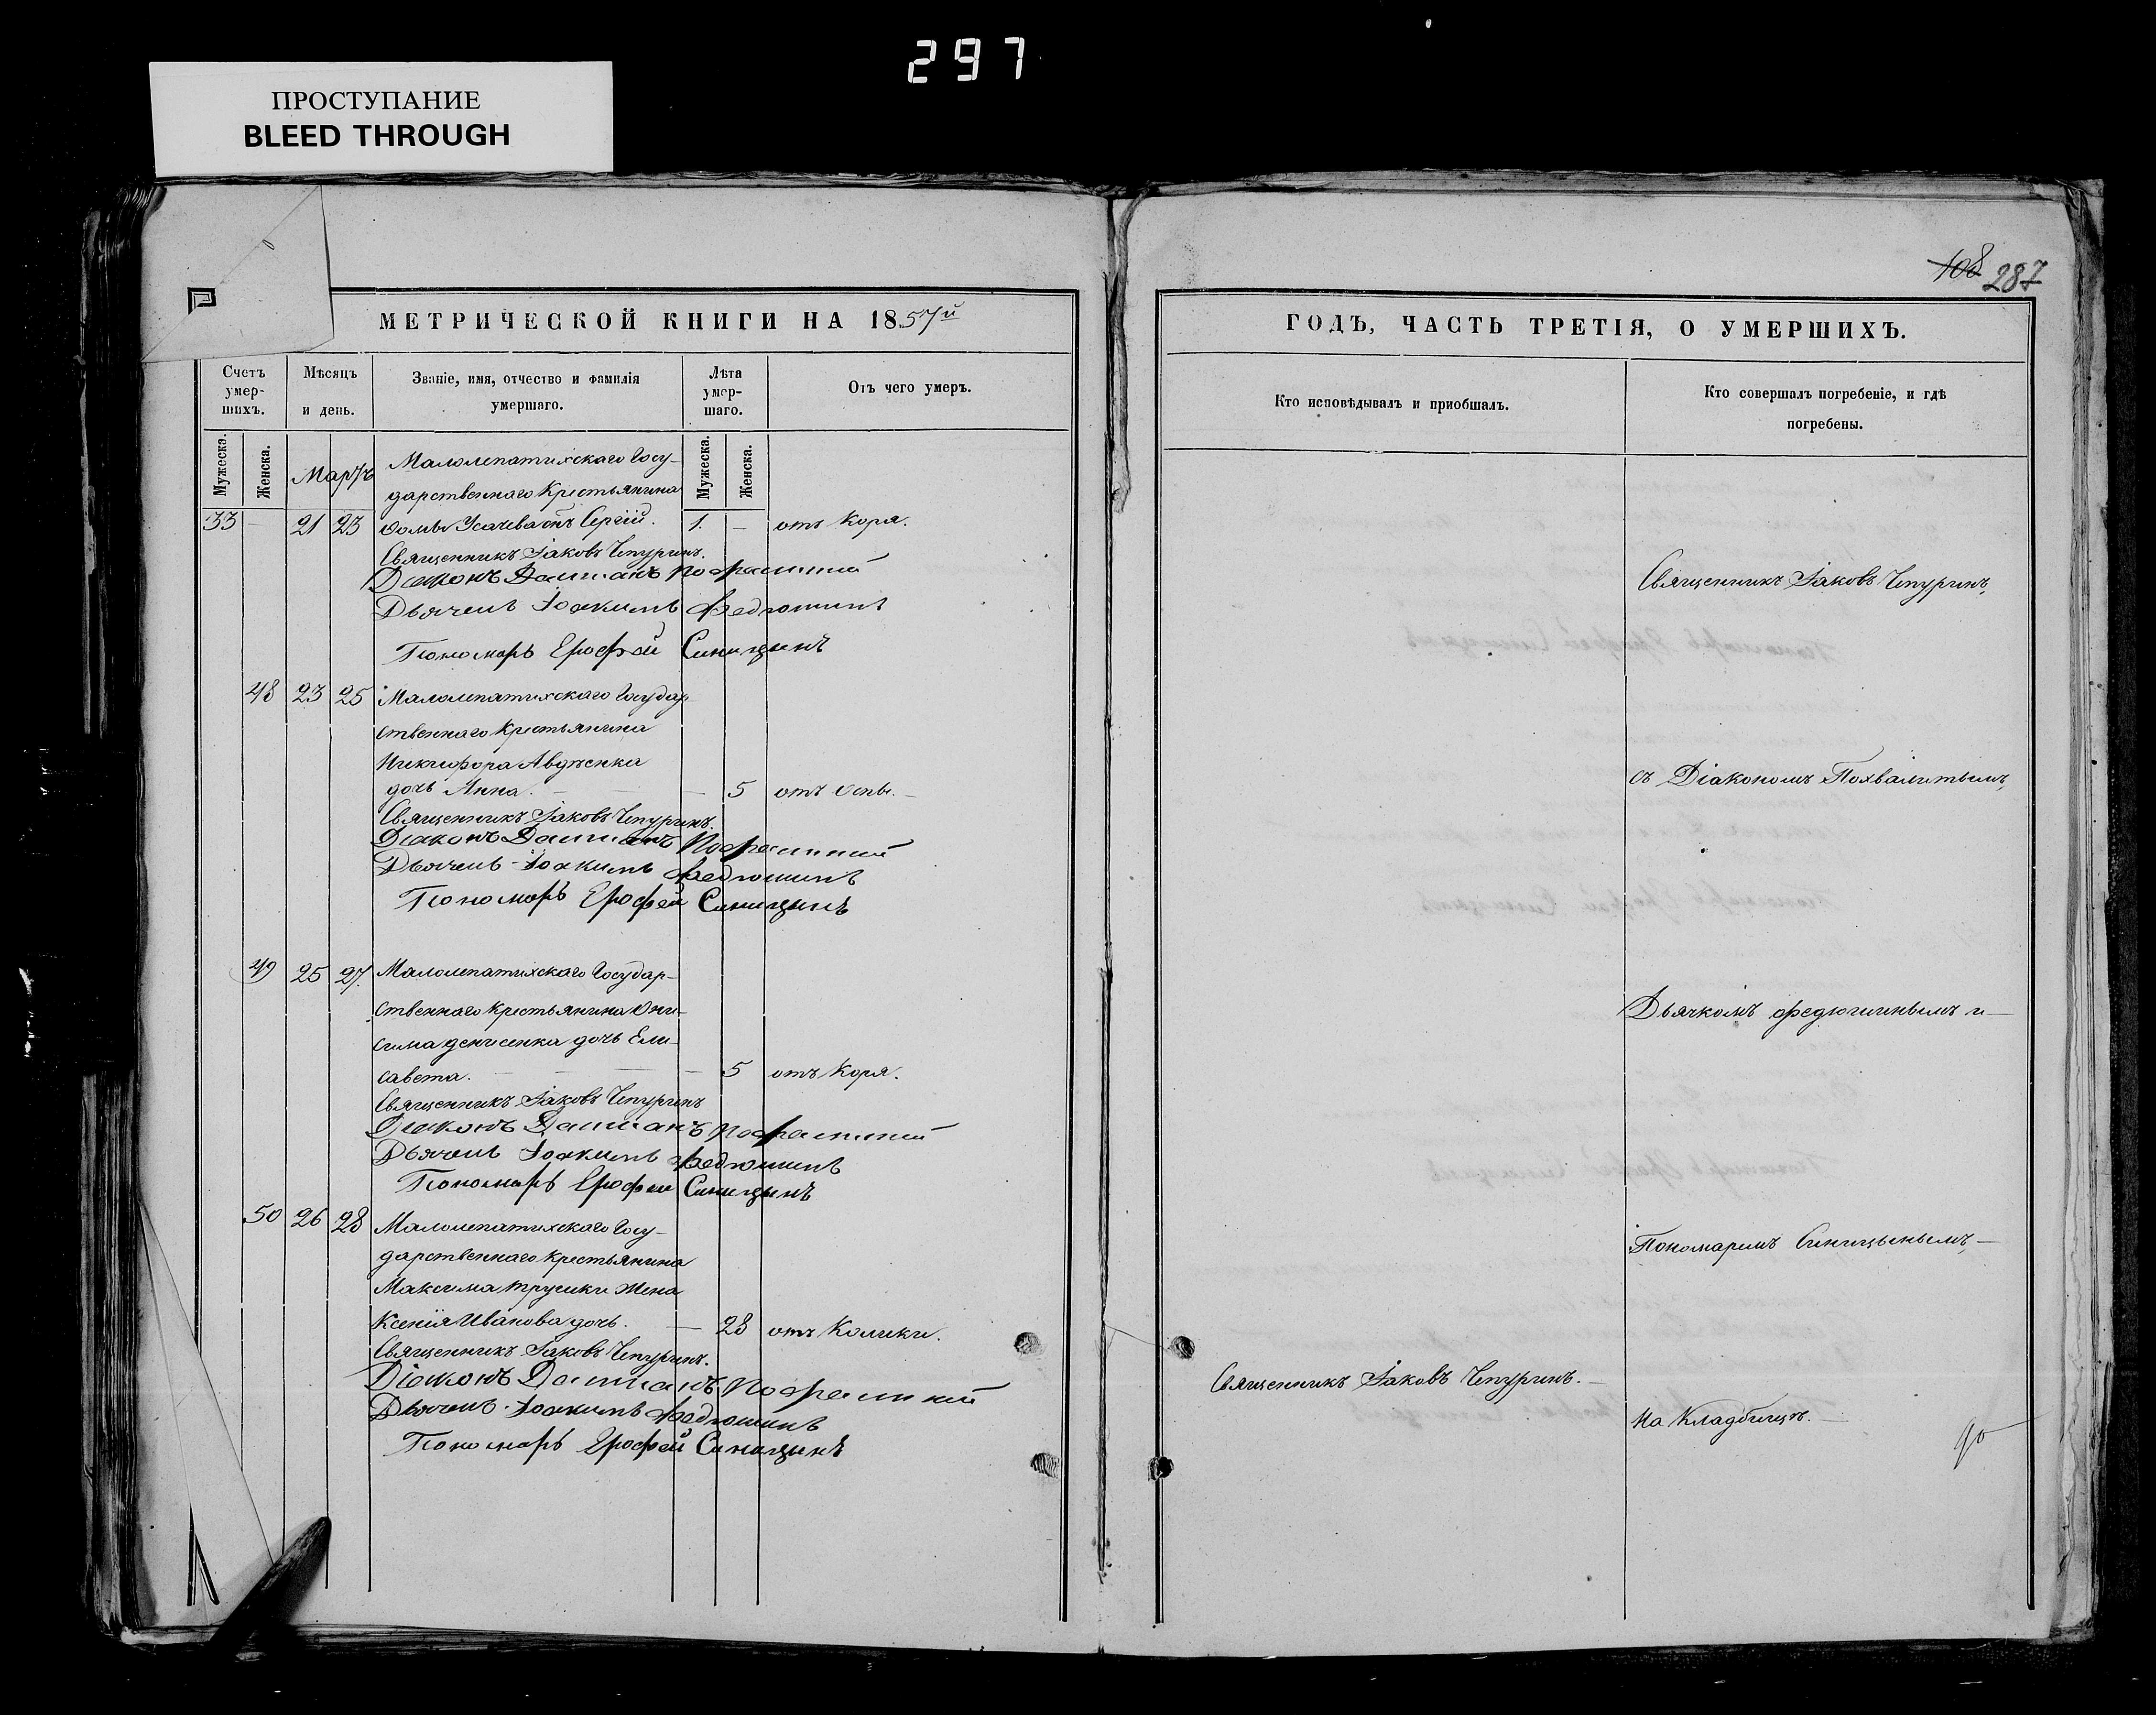 297
ПРОСТУПАНИЕ
BLEED THROUGH
108 287
МЕТРИЧЕСКОЙ КНИГИ НА 1857й
Счетъ умер-шихъ.
Мѣсяцъ и день.
Званіе, имя, отчество и фамилія умершаго.
Лѣта умер-шаго.
Отъ чего умеръ.
Мужеска.
Женска.
Мужеска.
Женска.
Мартъ
Малолепатихскаго Госу-
дарственнаго Крестьянина
33 — 21 23 Ѳомы Усачева сынъ Сергій. 1. — отъ Коря.
Священникъ Іаковъ Чепуринъ.
Діаконъ Даміанъ
Дьячекъ Іоакимъ Федюшинъ
Пономарь Ерофей Синицынъ
48 23 25 Малолепатихскаго Государ-
ственнаго Крестьянина
Никифора Авдѣенка
дочь Анна. — — 5 отъ Оспы. —
Священникъ Іаковъ Чепуринъ.
Діаконъ Даміанъ
Дьячекъ Іоакимъ Федюшинъ
Пономарь Ерофей Синицынъ
49 25 27. Малолепатихскаго Государ-
ственнаго Крестьянина Они-
сима Денисенка дочь Ели-
савета. — — — 5 отъ Коря.
Священникъ Іаковъ Чепуринъ
Діаконъ Даміанъ
Дьячекъ Іоакимъ Федюшинъ
Пономарь Ерофей Синицынъ
50 26 28 Малолепатихскаго Госу-
дарственнаго Крестьянина
Максима Трушки Жена
Ксенія Иванова дочь. — 28 отъ Колики.
Священникъ Іаковъ Чепуринъ.
Діаконъ Даміанъ
Дьячекъ Іоакимъ Федюшинъ
Пономарь Ерофей Синицынъ
ГОДЪ, ЧАСТЬ ТРЕТІЯ, О УМЕРШИХЪ.
Кто исповѣдывалъ и пріобщалъ.
Кто совершалъ погребеніе, и гдѣ
погребены.
Священникъ Іаковъ Чепуринъ,
съ Діакономъ Похвалитымъ,
Дьячкомъ Федюшинымъ и —
Пономаремъ Синицынымъ, —
Священникъ Іаковъ Чепуринъ. —
На Кладбищѣ. —